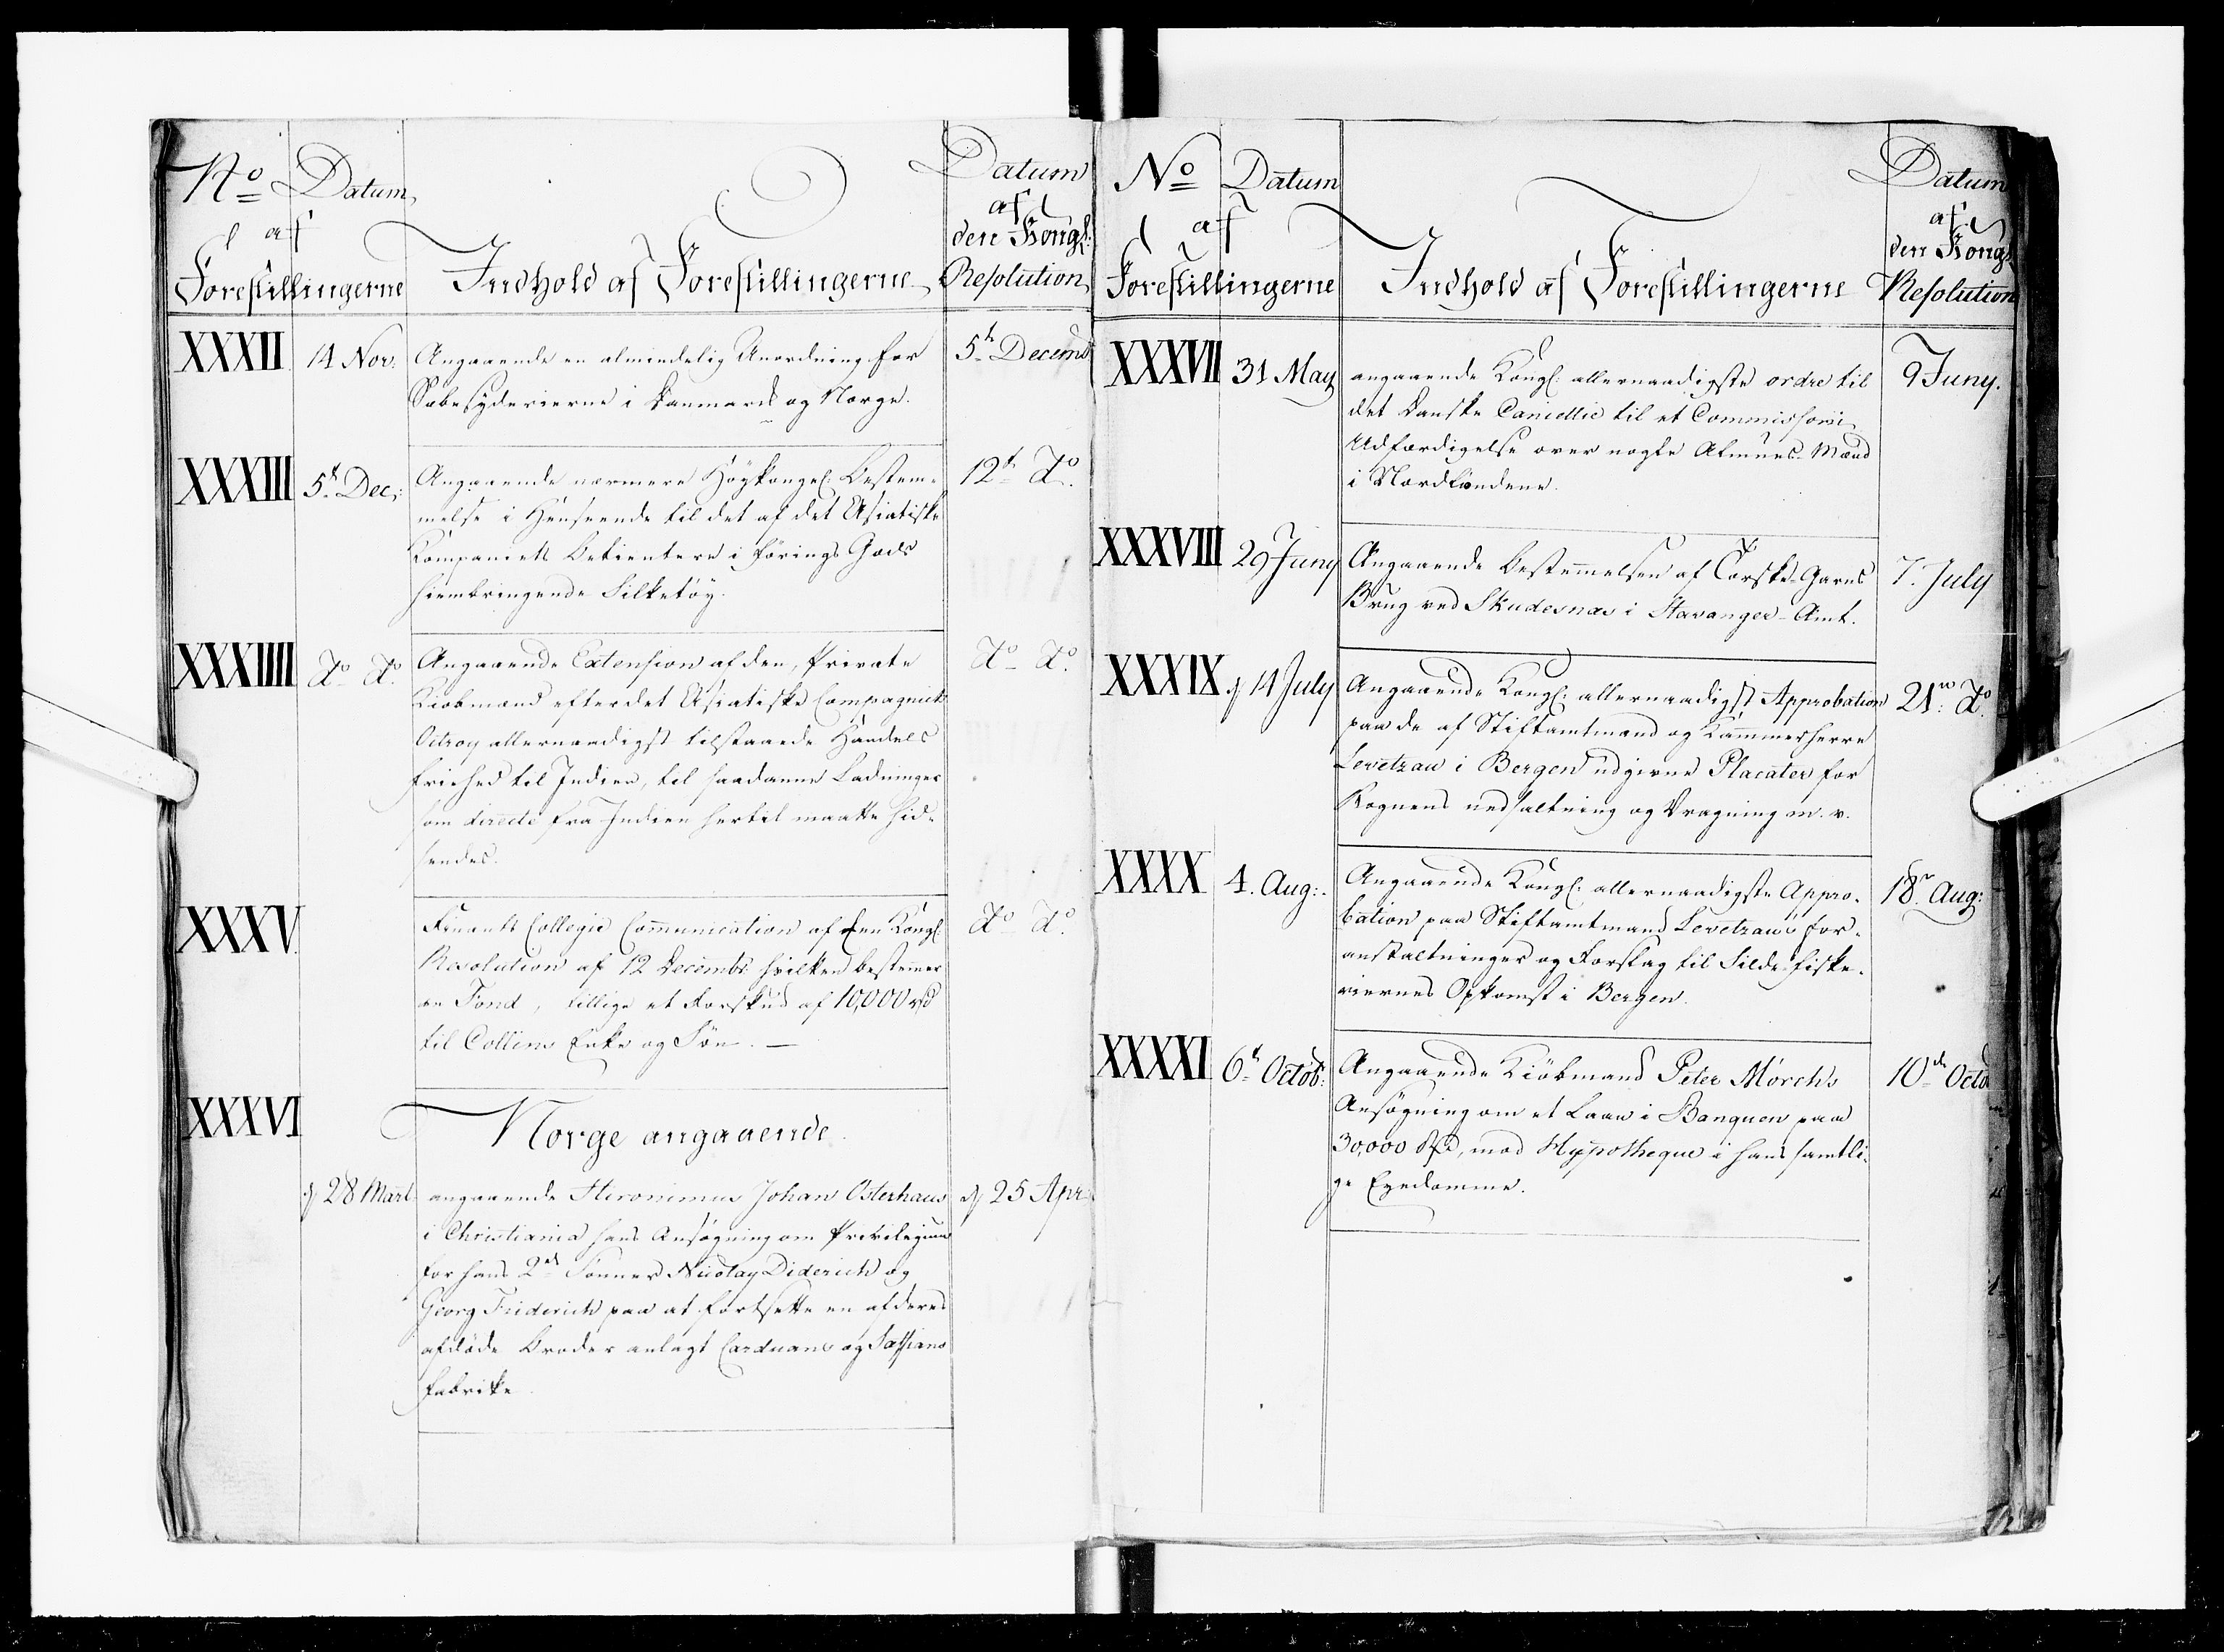 No Datum
af
Forestillingerne
Indhold af Forestillingerne
Datum
af
den Kongl:
Resolution
XXXII
14 Nov:
Angaaende en almindelig Anordning for
Sæbesyderierne i Danmark og Norge.
5te Decemb
XXXIII
5te Dec:
Angaaende nærmere Høykongel: Bestem-
melse i Henseende til det af det Asiatiske
Kompaniets Betientere i Førings Gods
hiembringende Silketøy.
12te Do
XXXIIII
Do Do
Angaaende Extension af den, Private
Kiøbmænd efter det Asiatiske Compagniets
Octroy allernaadigst tilstaaede Handels
Friehed til Indien, til saadanne Ladninger
som directe fra Indien hertil maatte hid-
sendes.
Do Do
XXXV
Finants Collegie Communication af den Kongl:
Resolution af 12 Decembr hvilken bestemmer
en Fond, tillige et Forskud af 10,000 rd
til Collins Enke og Søn. —
Do Do
XXXVI
Norge angaaende
28 Mart
angaaende Hieronimus Johan Osterhaus
i Christiania hans Ansøgning om Privilegium
for hans 2de Sønner Nicolay Diderich og
Georg Friderich paa at fortsette en af deres
afdøde Broder anlagt Carduans og Saffians
Fabrike
25 Apr
No Datum
af
Forestillingerne
Indhold af Forestillingerne
Datum
af
den Kongl:
Resolution
XXXVII
31 May
angaaende Kongl: allernaadigste ordre til
det Danske Cancellie til et Commissorii
Udfærdigelse over nogle Almues-Mænd
i Nordlandene.
9 Juny.
XXXVIII
29 Juny
Angaaende Bestemmelsen af Torske-Garns
Brug ved Skudesnæs i Stavanger-Amt.
7. July
XXXIX
14 July
Angaaende Kongl: allernaadigst Approbation
paa de af Stiftamtmand og Kammerherre
Levetzau i Bergen udgivne Placater for
Rognens nedsaltning og Vragning m. v.
21 Do
XXXX
4. Aug:
Angaaende Kongl: allernaadigste Appro-
bation paa Stiftamtmand Levetzaus for-
anstaltninger og Forslag til Silde-Fiske-
riernes Opkomst i Bergen.
18 Aug:
XXXXI
6te Octob:
Angaaende Kiøbmand Peter Mørch's
Ansøgning om et Laan i Banquen paa
30,000 Rd, mod Hypotheque i hans samtli-
ge Eyendomme.
10de Octo